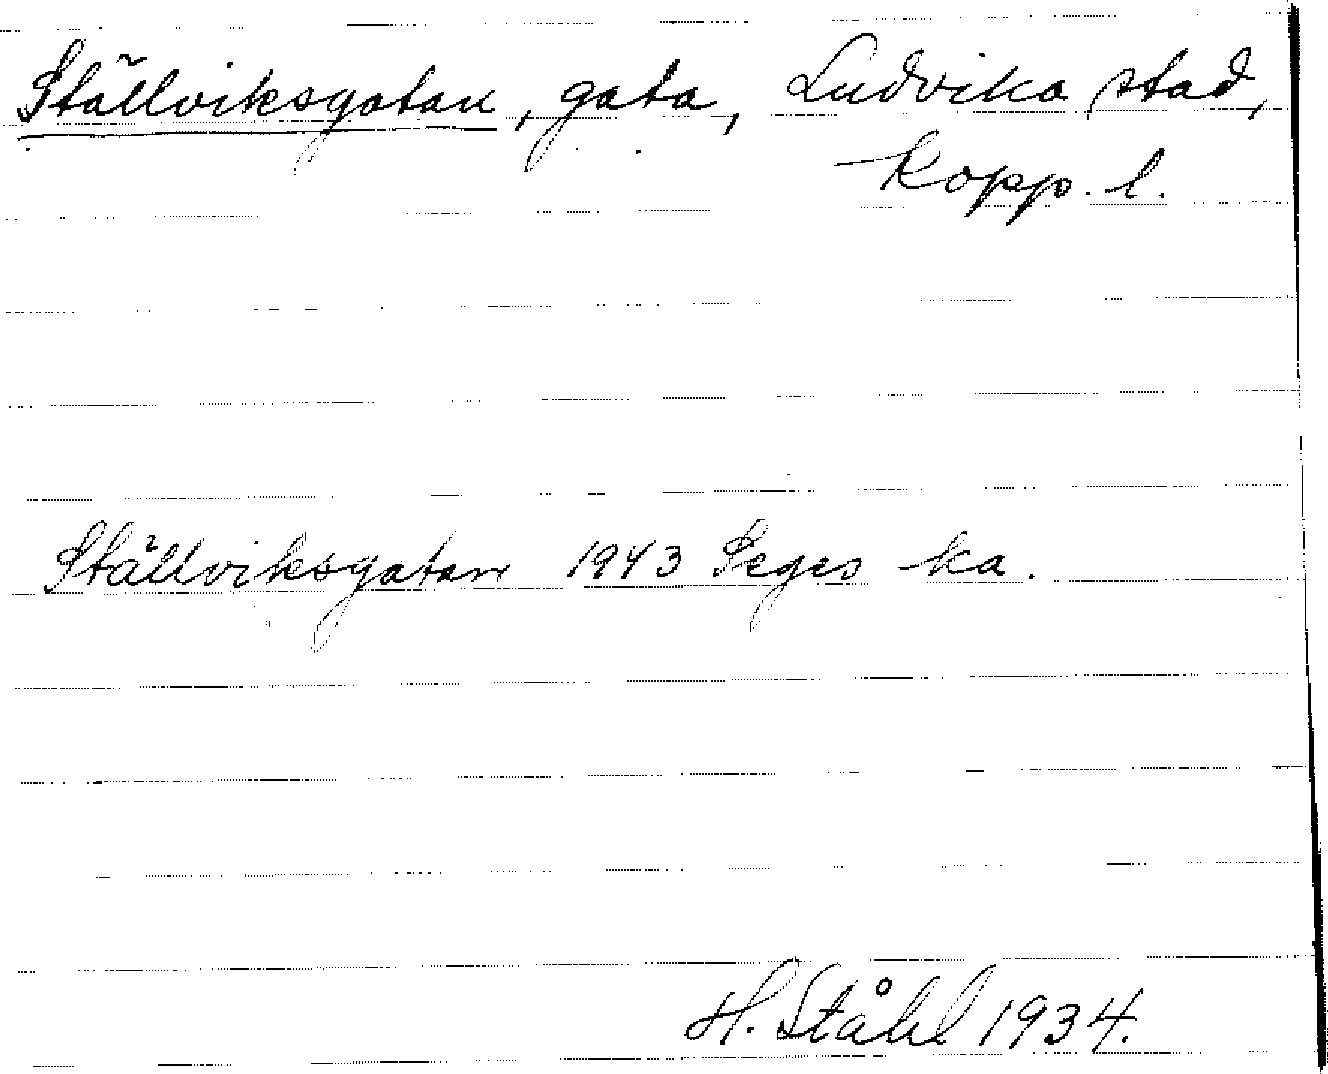 Ställviksgatan, gata, Ludvika stad,
Kopp. l.
Ställviksgatan 1943 Seges ka.
H. Ståhl 1934.